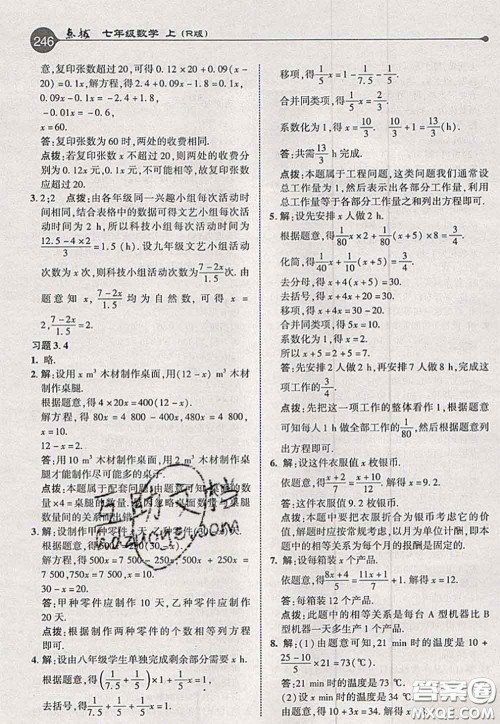 246 点拨 七年级数学 上 (R版)
意,复印张数超过20,可得 0.12×20+0.09(x-
20)=0.1x,解方程,得 2.4+0.09x-1.8=0.1x,
0.09x-0.1x=-2.4+1.8,
-0.01x=-0.6,
x=60.
答:复印张数为60时,两处的收费相同.
点拨:若复印张数 x 不超过20,则两处的收费分
别为0.12x元与0.1x元,不可能相等,故复印张数
应超过20.
3. 2;2 点拨:由各年级同一兴趣小组每次活动时
间相同,结合表格中的数据可得文艺小组每次活
动时间为 2 h,所以科技小组每次活动时间为
\frac{12.5-4×2}{3}=1.5(h).设九年级文艺小组活动
次数为 x 次,则科技小组活动次数为\frac{7-2x}{1.5}次.由
题意知 x,\frac{7-2x}{1.5}均为自然数,可得 x=
2,\frac{7-2x}{1.5}=2.
习题3.4
1. 略.
2. 解:设用 x m³ 木材制作桌面,用(12-x) m³木材
制作桌腿.
根据题意,得 4×20x=400(12-x).
解方程,得 80x=4 800-400x,480x=4 800,x=
10.
12-x=2.
答:用 10 m³ 木材制作桌面,用 2 m³木材制作桌
腿才能制作尽可能多的桌子.
点拨:本题属于配套问题,由题意可知
数量×4=桌腿的数量.
数量间的关系
3. 解:设制作甲种零件 x 天,
根据题意,得 500x=250(30-x).
解方程,得 500x=7 500-250x,500x+250x=
7 500,750x=7 500,x=10.
30-x=20.
答:甲种零件应制作 10 天,乙种零件应制作
20天.
点拨:根据两种零件的个数相等列方程
即可.
4. 解:设由八年级学生单独完成剩余部分需要 x h.
根据题意,得\frac{1}{7.5}×1+\frac{1}{5}×1+\frac{1}{5}x=1.
去括号,得\frac{1}{7.5}+\frac{1}{5}+\frac{1}{5}x=1.
移项,得\frac{1}{5}x=1-\frac{1}{7.5}-\frac{1}{5}.
合并同类项,得\frac{1}{5}x=\frac{2}{3}.
系数化为1,得 x=\frac{10}{3}. \frac{10}{3}+1=\frac{13}{3}(h).
答:共需\frac{13}{3} h 完成.
点拨:本题属于工程问题,这类问题我们通常设
总工作量为 1,然后表示出各部分工作量,利用
总工作量等于各部分工作量之和列出方程即可.
5. 解:设先安排 x 人做2 h.
根据题意,得\frac{1}{80}×2x+\frac{1}{80}×8(x+5)=\frac{3}{4}.
化简,得\frac{1}{40}x+\frac{1}{10}(x+5)=\frac{3}{4}.
去分母,得 x+4(x+5)=30.
去括号,得 x+4x+20=30.
移项、合并同类项,得 5x=10.
系数化为1,得 x=2. x+5=7.
答:先安排 2 人做 2 h,再安排 7 人做 8 h,完成这
项工作的\frac{3}{4}.
点拨:先把这一项工作的整体看作1,根据题意可
知每人每小时完成这项工作的\frac{1}{80},再根据题意
列出方程即可.
6. 解:设这件衣服值 x 枚银币.
依题意,得\frac{x+10}{12}=\frac{x+2}{7}.解得 x=9.2.
答:这件衣服值 9.2 枚银币.
点拨:本题中要把衣服折合为银币考虑它的价
值,以月工资为单位考虑相等关系,即每月工资
相等,年工资和工作7个月的工资都按这个相同
的每月平均报酬给定的.
7. 解:设每箱装 x 个产品.
依题意,得\frac{8x+4}{5}=\frac{11x+1}{7}+1.解得 x=12.
答:每箱装 12 个产品.
点拨:这里的相等关系是每台 A 型机器比 B
型机器一天多生产 1 个产品.
8. 解:(1)由题意可知,21 min 时的温度=10+
\frac{25-10}{5}×21=73(℃).
答:21 min 时的温度是 73 ℃.